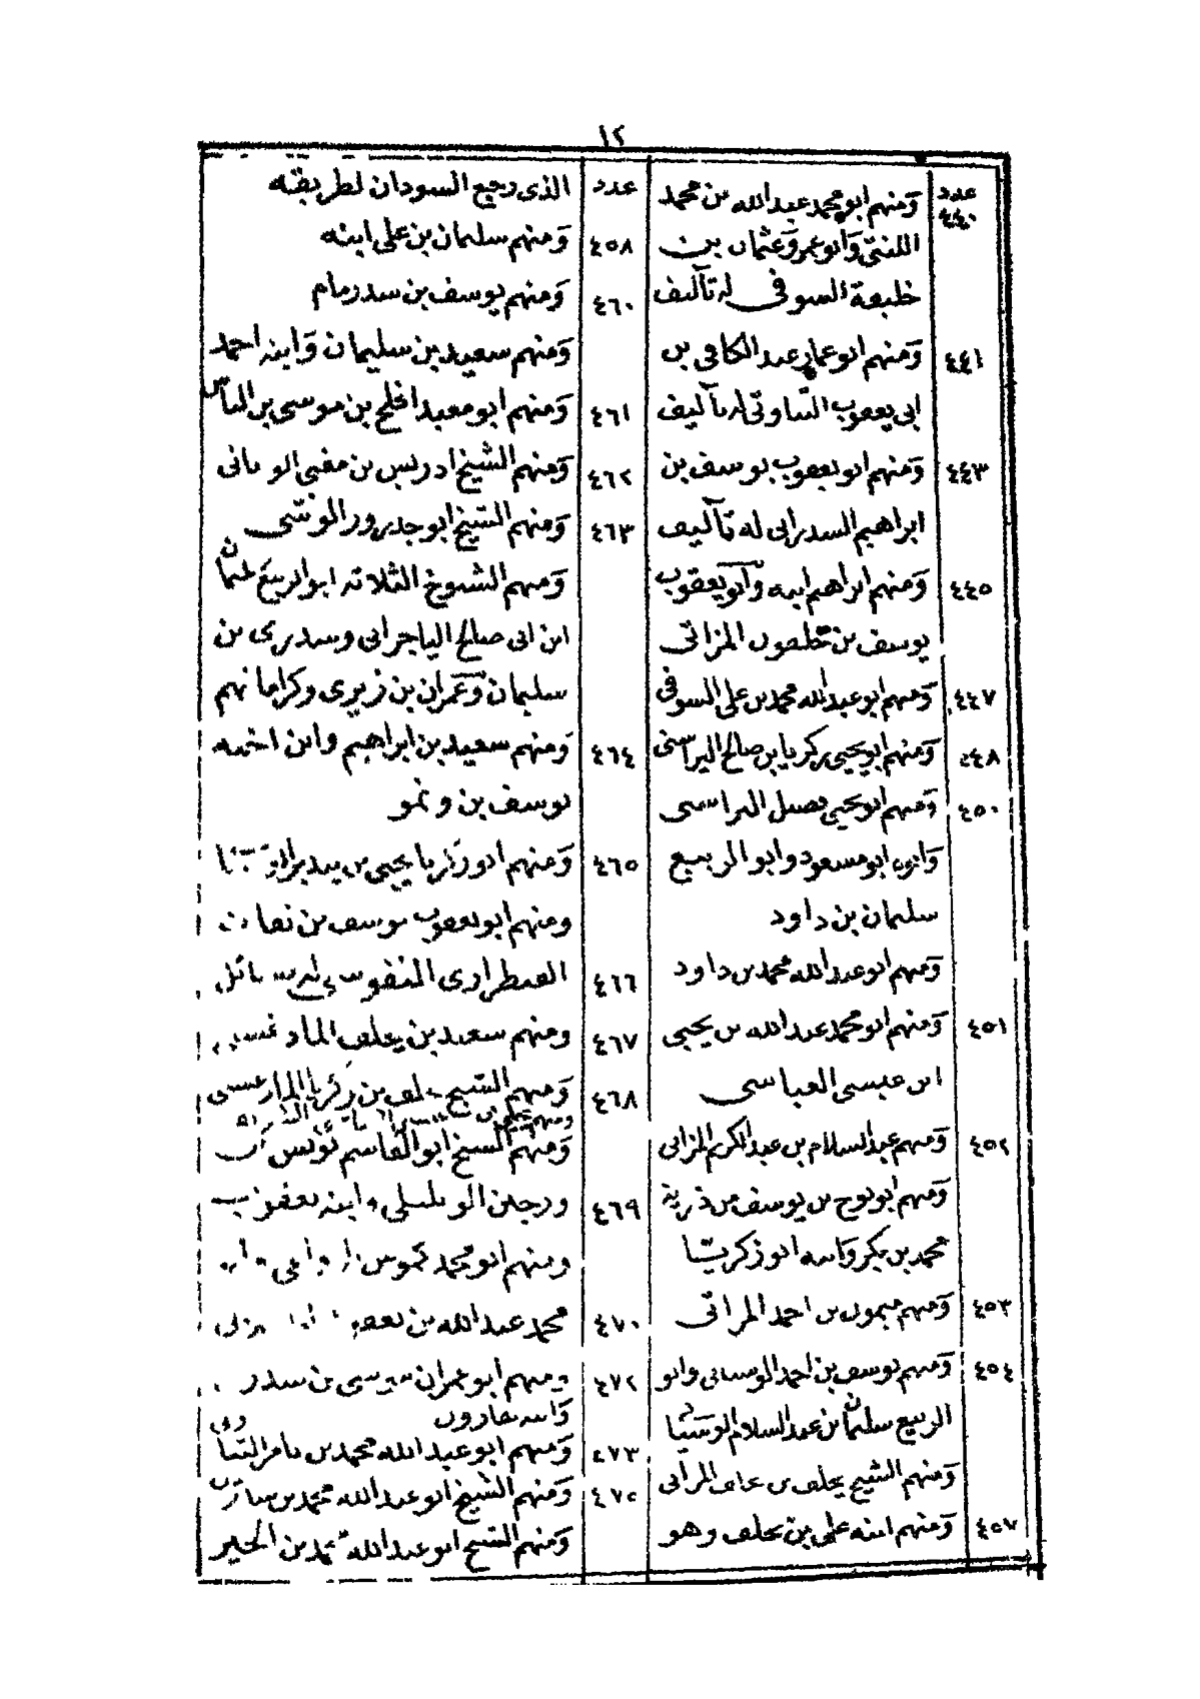 ١٢
عدد
٤٤٠ ومنهم ابو محمد عبد الله بن محمد
اللنتى وابو عمرو عثمان بن
خليفة السوفى له تآليف
٤٤١ ومنهم ابو عمار عبد الكافى بن
ابى يعقوب التناوتى له تآليف
٤٤٣ ومنهم ابو يعقوب يوسف بن
ابراهيم السدراتى له تآليف
٤٤٥ ومنهم ابراهيم ابنه وابو يعقوب
يوسف بن خلفون المزاتى
٤٤٧ ومنهم ابو عبد الله محمد بن على السوفى
٤٤٨ ومنهم ابو يحيى زكريا بن صالح اليراسنى
٤٥٠ ومنهم ابو يحيى فصيل اليراسنى
وابوه ابو مسعود وابو الربيع
سليمان بن داود
ومنهم ابو عبد الله محمد بن داود
٤٥١ ومنهم ابو محمد عبد الله بن يحيى
ابن عيسى العباسى
٤٥٢ ومنهم عبد السلام بن عبد الكريم المزاتى
ومنهم ابو نوح بن يوسف من ذرية
محمد بن بكر وابنه ابو زكرياء
٤٥٣ ومنهم ميمون بن احمد المزاتى
٤٥٤ ومنهم يوسف بن احمد الوسيانى وابو
الربيع سليمان بن عبد السلام الوسيانى
ومنهم الشيخ يخلف بن يخلف المزاتى
٤٥٧ ومنهم ابنه على بن يخلف وهو
عدد الذى رجع السودان لطريقته
٤٥٨ ومنهم سليمان بن على ابنه
٤٦٠ ومنهم يوسف بن سدرمام
ومنهم سعيد بن سليمان وابنه احمد
٤٦١ ومنهم ابو معبد افلح بن موسى بن الياس
٤٦٢ ومنهم الشيخ ادريس بن مفى
٤٦٣ ومنهم الشيخ ابو جديرور المونسى
ومنهم الشيوخ الثلاثه ابو الربيع سليمان
ابن ابى صالح الياجرانى وسدرى بن
سليمان وعمران بن زيرى وكراماتهم
٤٦٤ ومنهم سعيد بن ابراهيم وابن اخته
يوسف بن ونمو
٤٦٥ ومنهم ابو زكريا يحيى بن
ومنهم ابو يعقوب يوسف بن نفاث
٤٦٦ القنطرارى النفوسى
٤٦٧ ومنهم سعيد بن يخلف المادغسنى
٤٦٨ ومنهم الشيخ خلف بن زكريا المدارغسنى
ومنهم الشيخ ابو القاسم يونس بن
٤٦٩ ورجلين الويليلى وابنه يعقوب
ومنهم ابو محمد كموس
٤٧٠ محمد عبد الله بن يعقوب
٤٧٢ ومنهم ابو عمران موسى بن سدرين
وابنه هارون
٤٧٣ ومنهم ابو عبد الله محمد بن
٤٧٥ ومنهم الشيخ ابو عبد الله محمد بن
ومنهم الشيخ ابو عبد الله محمد بن الخير